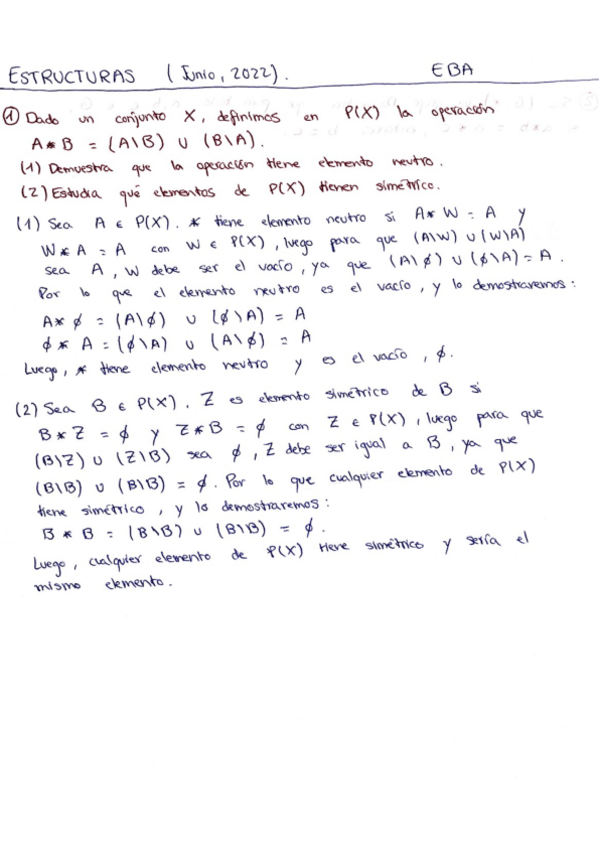 ESTRUCTURAS (Junio, 2022). EBA
① Dado un conjunto X, definimos en P(X) la operación
A * B = (A\B) ∪ (B\A).
(1) Demuestra que la operación tiene elemento neutro.
(2) Estudia qué elementos de P(X) tienen simétrico.
(1) Sea A ∈ P(X). * tiene elemento neutro si A * W = A y
W * A = A con W ∈ P(X), luego para que (A\W) ∪ (W\A)
sea A, W debe ser el vacío, ya que (A\∅) ∪ (∅\A) = A.
Por lo que el elemento neutro es el vacío, y lo demostraremos:
A * ∅ = (A\∅) ∪ (∅\A) = A
∅ * A = (∅\A) ∪ (A\∅) = A
Luego, * tiene elemento neutro y es el vacío, ∅.
(2) Sea B ∈ P(X). Z es elemento simétrico de B si
B * Z = ∅ y Z * B = ∅ con Z ∈ P(X), luego para que
(B\Z) ∪ (Z\B) sea ∅, Z debe ser igual a B, ya que
(B\B) ∪ (B\B) = ∅. Por lo que cualquier elemento de P(X)
tiene simétrico, y lo demostraremos:
B * B = (B\B) ∪ (B\B) = ∅.
Luego, cualquier elemento de P(X) tiene simétrico y sería el
mismo elemento.